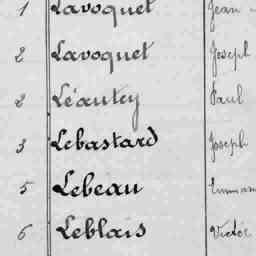 1 Lavoquet Jean
2 Lavoquet Joseph
2 Léautey Paul
3 Lebastard Joseph
5 Lebeau
6 Leblais Victor